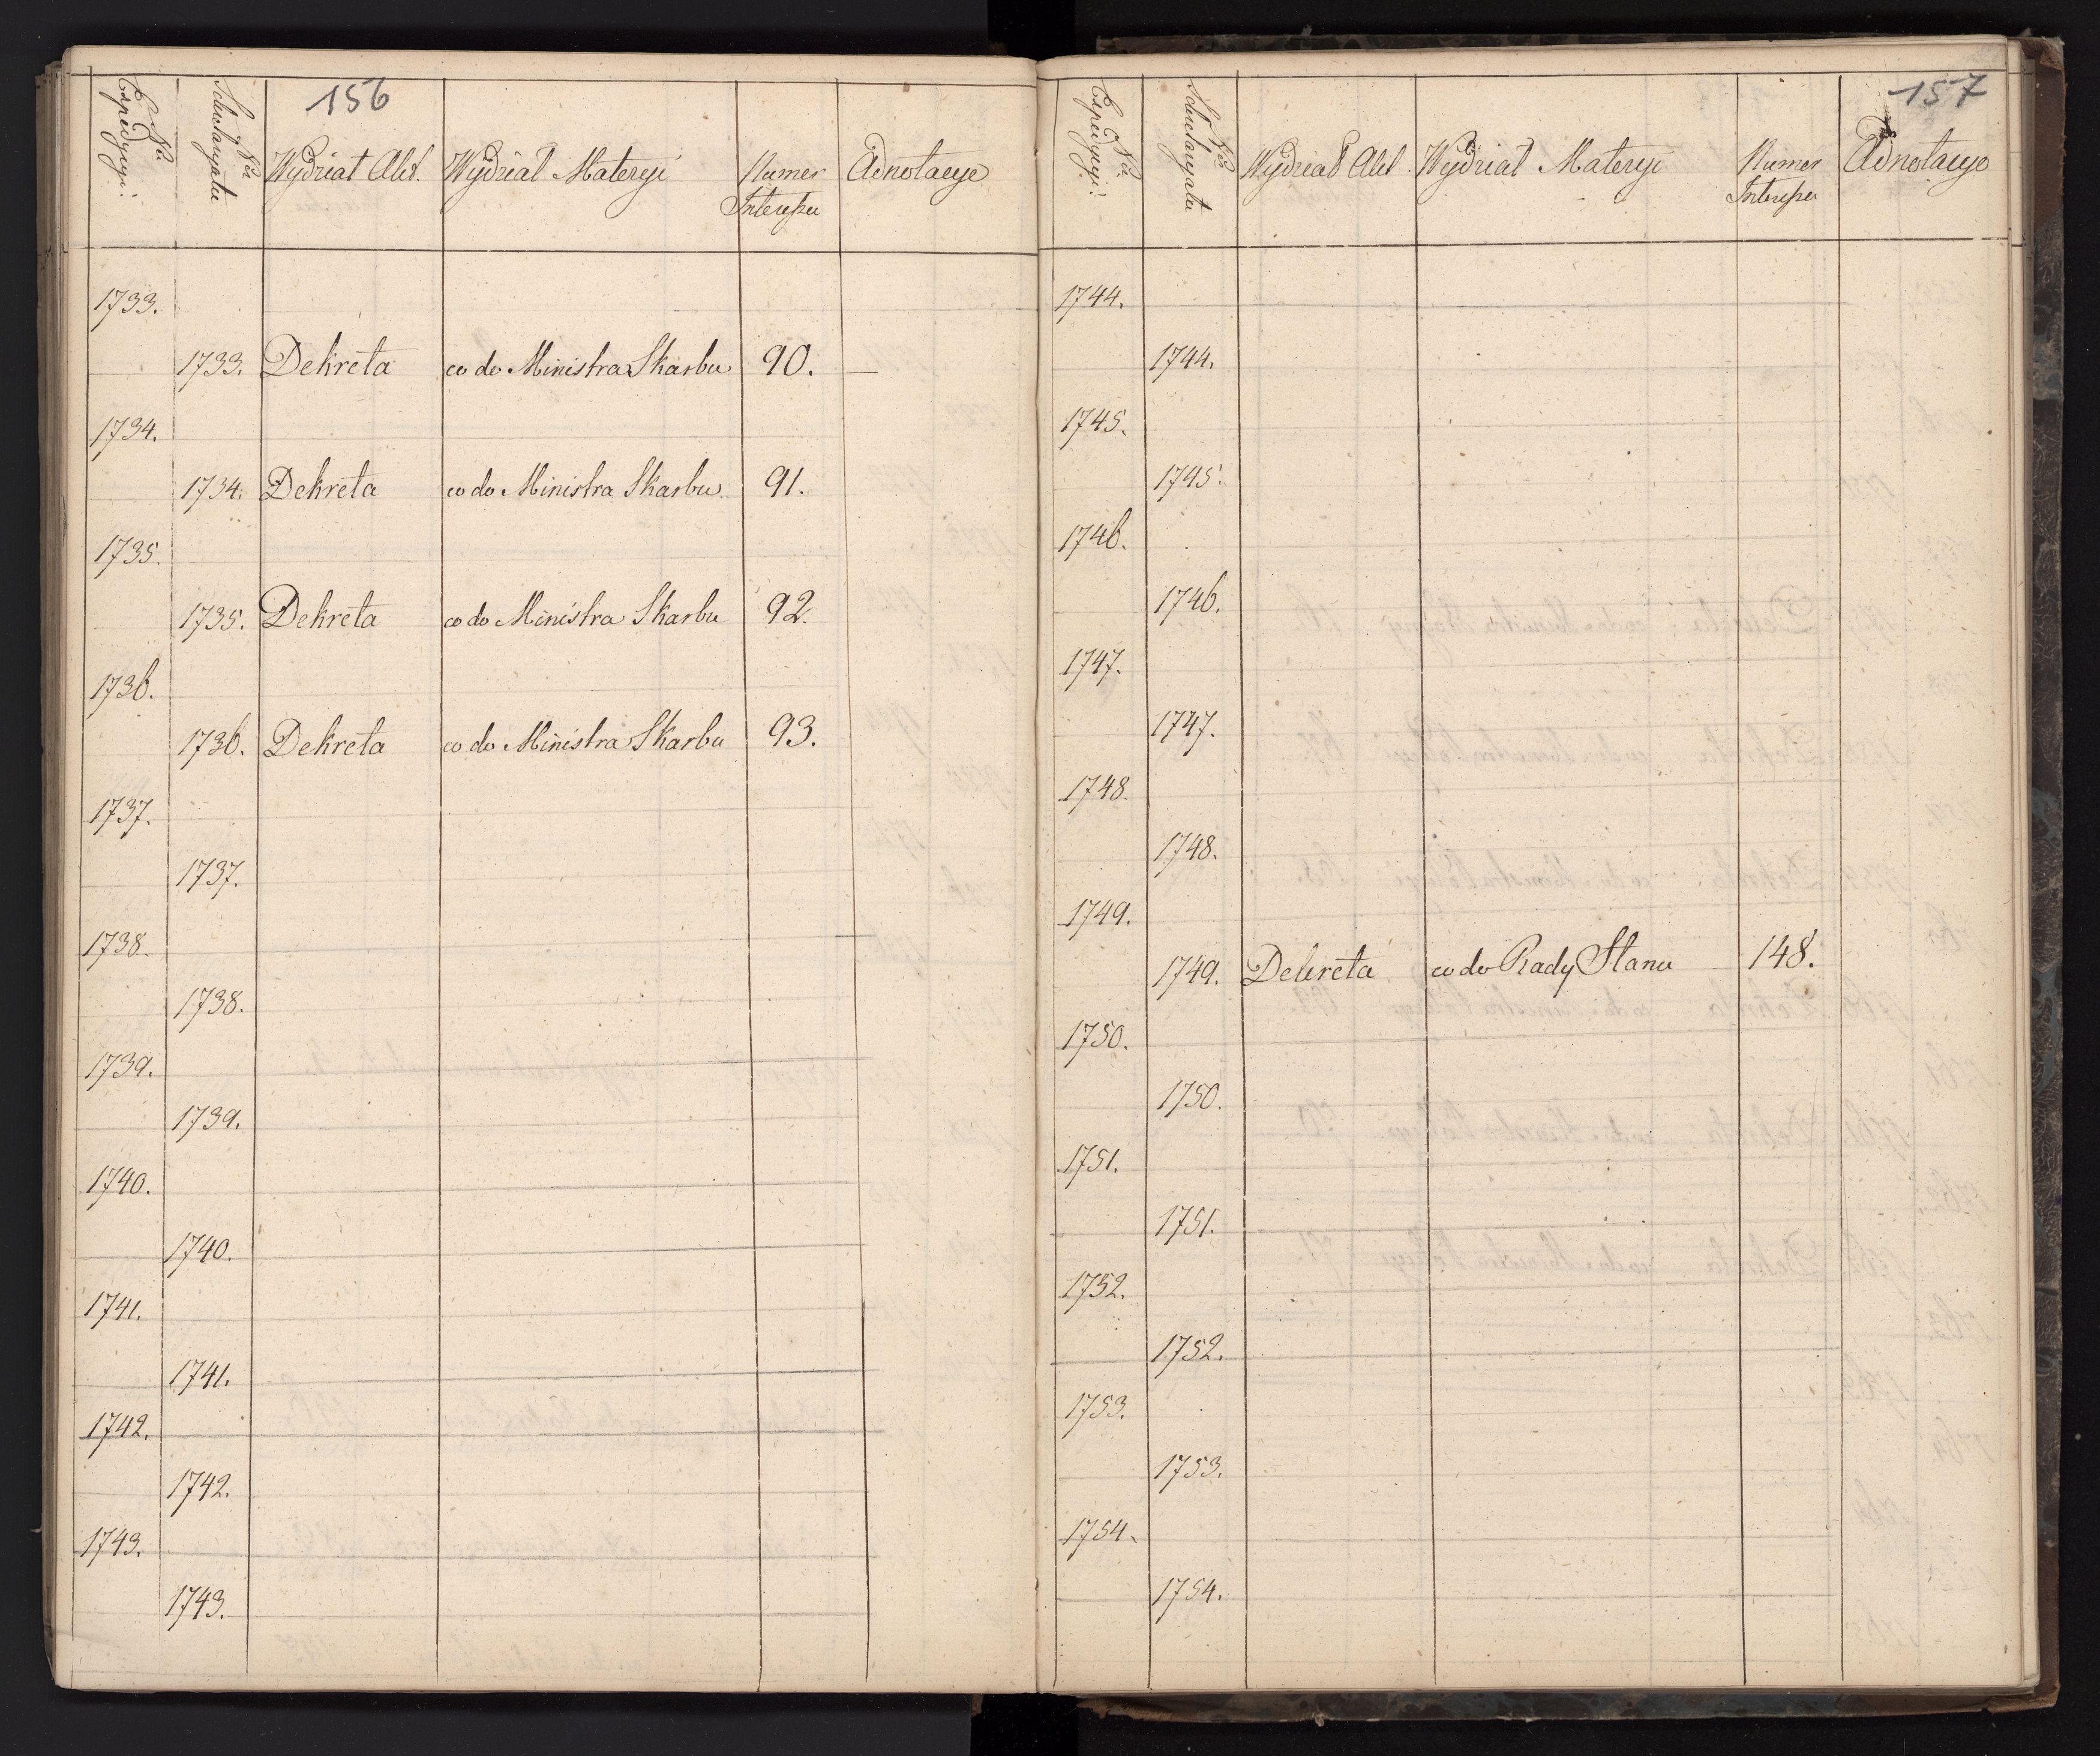 156
Nr Expedycyi.
Nr Seuelanyatu
Wydział Akt.
Wydział Materyi
Numer
Interesu
Adnotacye
1733.
1733. Dekreta co do Ministra Skarbu 90. —
1734.
1734. Dekreta co do Ministra Skarbu 91.
1735.
1735. Dekreta co do Ministra Skarbu 92.
1736.
1736. Dekreta co do Ministra Skarbu 93.
1737.
1737.
1738.
1738.
1739.
1739.
1740.
1740.
1741.
1741.
1742.
1742.
1743.
1743.
157
Nr Expedycyi.
Wydział Akt.
Wydział Materyi
Numer
Interesu
Adnotacye
1744.
1744.
1745.
1745.
1746.
1746.
1747.
1747.
1748.
1748.
1749.
1749. Dekreta co do Rady Stanu 148.
1750.
1750.
1751.
1751.
1752.
1752.
1753.
1753.
1754.
1754.